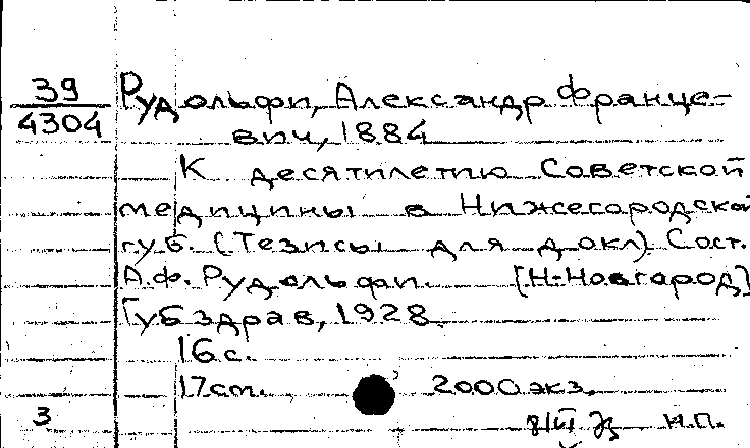 39
4304
Рудольфи, Александр Франце-
вич, 1884
К десятилетию Советской
медицины в Нижегородской
губ. (Тезисы для докл). Сост.
А.Ф. Рудольфи. [Н-Новгород]
Губздрав, 1928.
16 с.
17 cm. 2000 экз.
3 н.п.